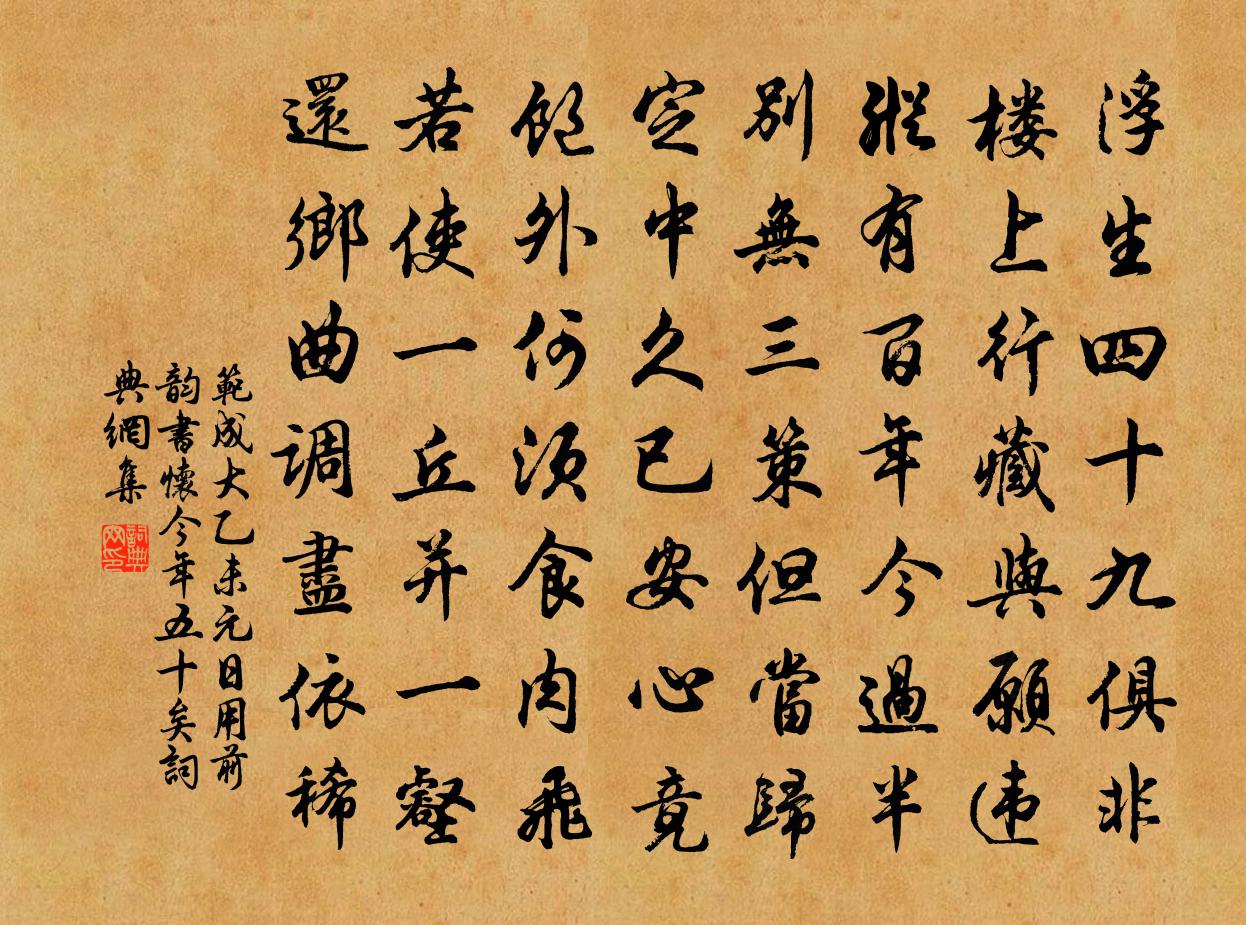 浮生四十九俱非
楼上行藏與願违
縱有百年今過半
別無三策但當歸
定中久已安心竟
飽外何須食肉飛
若使一丘并一壑
還鄉曲調盡依稀
範成大乙未元日用前
韵書懷今年五十矣詞
典網集
詞典网印